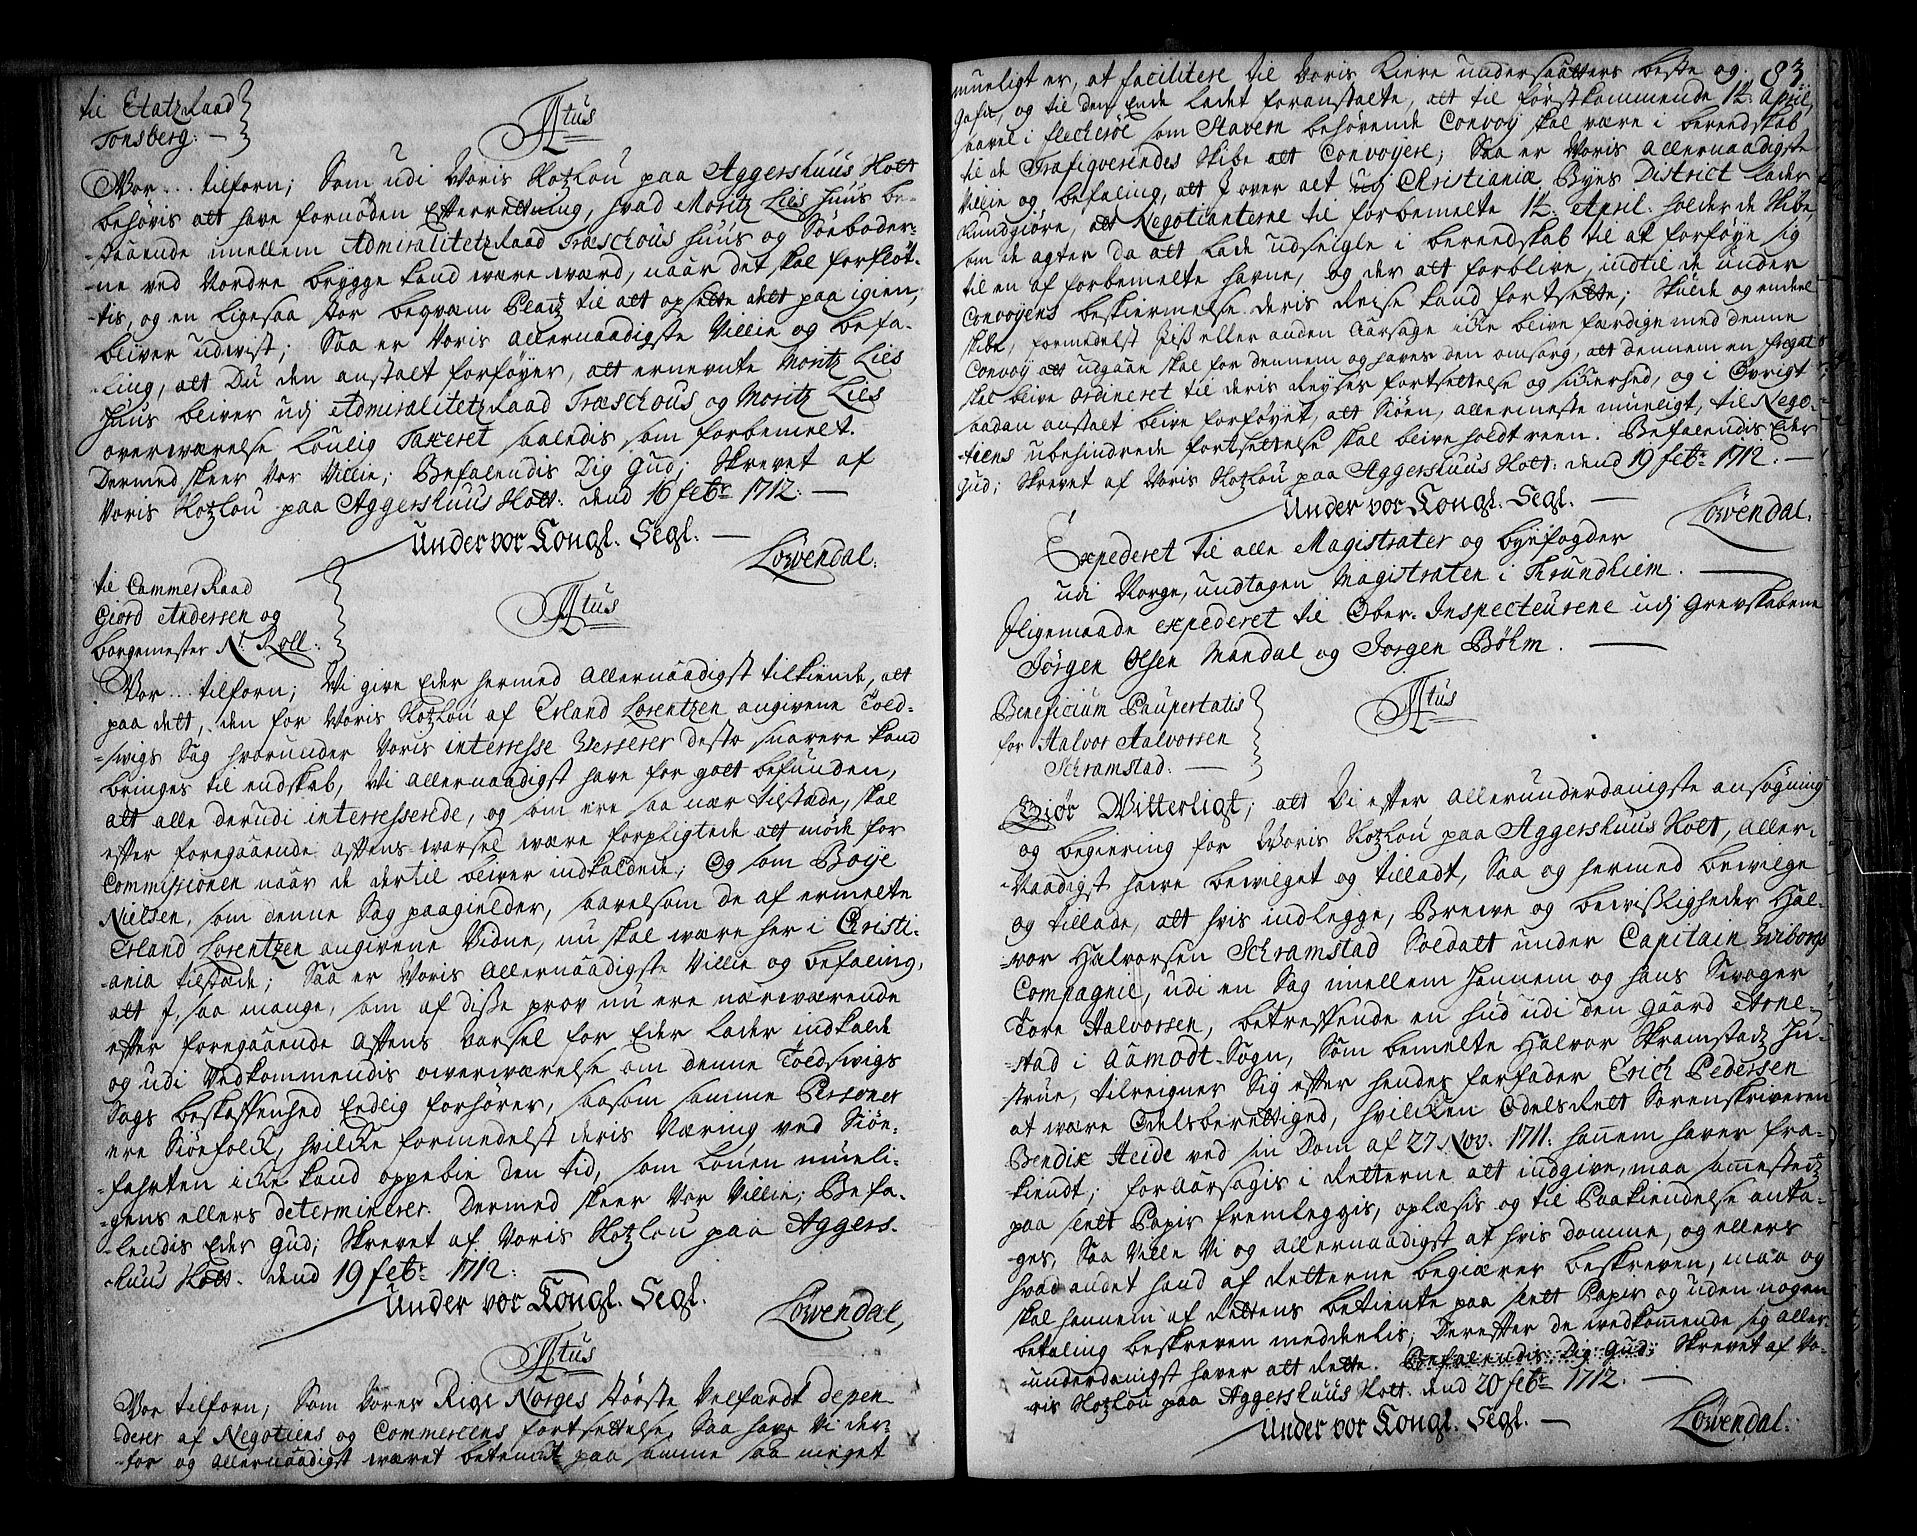 til EtatzRaad
Tonsberg: —
Atus
Vor... tilforn; Som udi Voris Slotzlou paa Aggershuus Slott
behøris att have fornøden Efterretning, hvad Moritz Lies huus be-
-staaende imellem Admiralitetzraad Træschous huus og Søeboder-
-ne ved Nordre brygge kand være værd, naar det skal forfløt-
-tis, og en ligesaa stor beqvæm Platz til att opsette dett paa igien,
bliver udvist; Saa er Voris allernaadigste Villie og befa-
-ling, att Du den anstalt forføyer, att ernevnte Moritz Lies
huus bliver udj Admiralitetzraad Træschous og Moritz Lies
overværelse louelig Taxeret saaledis, som forbemelt.
Dermed skeer Vor Villie; Befalendis Dig Gud; Skrevet af
Voris Slotzlou paa Aggershuus Slott. dend 16 febr. 1712. —
Under vor Kongl. Segl. —
Løwendal.
til CammerRaad
Giord Andersen og
borgemester N. Roll.
Atus
Vor... tilforn; Vi give Eder hermed Allernaadigst tilkiende, att
paa dett, den for Voris Slotzlou af Erland Lorentzen angivene Told-
-svigs Sag hvorunder Voris interresse Verserer desto snarere kand
bringes til endskab, Vi Allernaadigst have for gott befunden,
att alle derudi interresserede, og som ere saa nær tilstæde, skal
efter foregaaende aftens varsel være forpligtede att møde for
Commissionen naar de dertil bliver indkaldede; Og som Boye
Nielsen, som denne Sag paagielder, saavelsom de af ermelte
Erland Lorentzen angivene Vidne, nu skal være her i Christi-
ania tilstæde; Saa er Voris Allernaadigste Villie og befaling,
att J, saa mange, som af disse prov nu ere nærværende
efter foregaaende Aftens Varsel for Eder lader indkalde
og udi Vedkommendis overværelse om denne Toldsvigs
Sags beskaffenhed Endelig forhører, saasom samme Personer
ere Siøefolck, hvilcke formedelst deris Næring ved Siøe-
-farten icke kand oppebie den tid, som Louen mueli-
-gens ellers determinerer. Dermed skeer Vor Villie; Befa-
-lendis Eder Gud; Skrevet af Voris Slotzlou paa Aggers-
-huus Slott. dend 19 febr. 1712: —
Under vor Kongl. Segl.
Løwendal,
Atus
Vor tilforn; Som Vores Rige Norges største Velfærdt depen-
-derer af Negotiens og Commerciens fortsettelse, Saa have Vi der-
-for og Allernaadigst været betænckt paa samme saa meget
83.
mueligt er, at facilitere til Voris kiere undersaatters beste og
Gafn, og til den Ende ladet foranstalte, att til førstkommende 14. April,
saavel i Flecherøe som Stavern behørende Convoy skal være i bereedskab
til de Trafiqverendes Skibe att Convoyere; Saa er Voris allernaadigste
Villie og befaling, att J over alt udj Christianiæ Byes District lader
kundgiøre, att Negotianterne til forbemelte 14. April. holder de Skibe,
som de agter da att lade udseigle i bereedskab til at forføye sig
til en af forbemelte havne, og der att forblive, indtil de under
Convoyens beskiermelse deris Reise kand fortsette; Skulde og endeel
skibe, formedelst Jiss eller anden Aarsage icke blive færdige med denne
Convoy att udgaae skal for dennem og haves den omsorg, att dennem en fregat
skal blive ordineret til deris Reyses fortsettelse og sickerhed, og i Øvrigt
saadan anstalt blive forføyet, att Siøen, allermeste mueligt, til Nego-
-tiens ubehindrede fortsettelse skal blive holdt reen. Befalendis Eder
Gud; Skrevet af Voris Slotzlou paa Aggershuus Slott. dend 19 febr. 1712. —
Under vor Kongl. Segl. —
Løvendal.
Expederet til alle Magistrater og byefogder
udi Norge, undtagen Magistraten i Trundhiem. —
Jligemaade expederet til Ober-Inspecteurene udj Grevskabene
Jørgen Olsen Mandal og Jorgen Bøhm. —
Beneficium Paupertatis
for Halvor Halvorsen
Schramstad. —
Atus
Giør Vitterligt; att Vi efter Allerunderdanigste ansøgning
og begiering for Voris Slotzlou paa Aggershuus Slott, Aller-
-Naadigst have bevilget og tilladt, Saa og hermed bevilge
og tillade, att hvis indlegge, Breve og bevissligheder Hal-
-vor Halvorsen Schramstad Soldatt under Capitain Wiborgs
Compagnie, udi en Sag imellem hannem og hans Svoger
Tore Halvorsen, betreffende en hud udi den gaard Arne-
-stad i Aamodt-Sogn, Som bemelte Halvor Skramstadz Hu-
-strue, tilreigner Sig efter hendes forfader Erich Pedersen
at være Odelsberettiged, hvilcken Odelsrett Sorenskriveren
Bendix Heide ved sin Dom af 27. Nov. 1711. hannem haver fra-
-kiendt; foraarsagis i Retterne att indgive, maa sammestedz
paa slett Papir fremleggis, oplæsis og til Paakiendelse anta-
-ges, Saa Ville Vi og Allernaadigst at hvis domme, og ellers
hvad andet hand af Retterne begiærer beskreven, maa og
skal hannem af Rettens betiente paa slett Papir og uden nogen
betaling beskreven meddeelis; Derefter de vedkommende sig aller-
underdanigst haver att rette. Befalendis Dig Gud; Skrevet af Vo-
-ris Slotzlou paa Aggershuus Slott. dend 20 febr. 1712. —
Under vor Kongl. Segl. —
Løvendal.